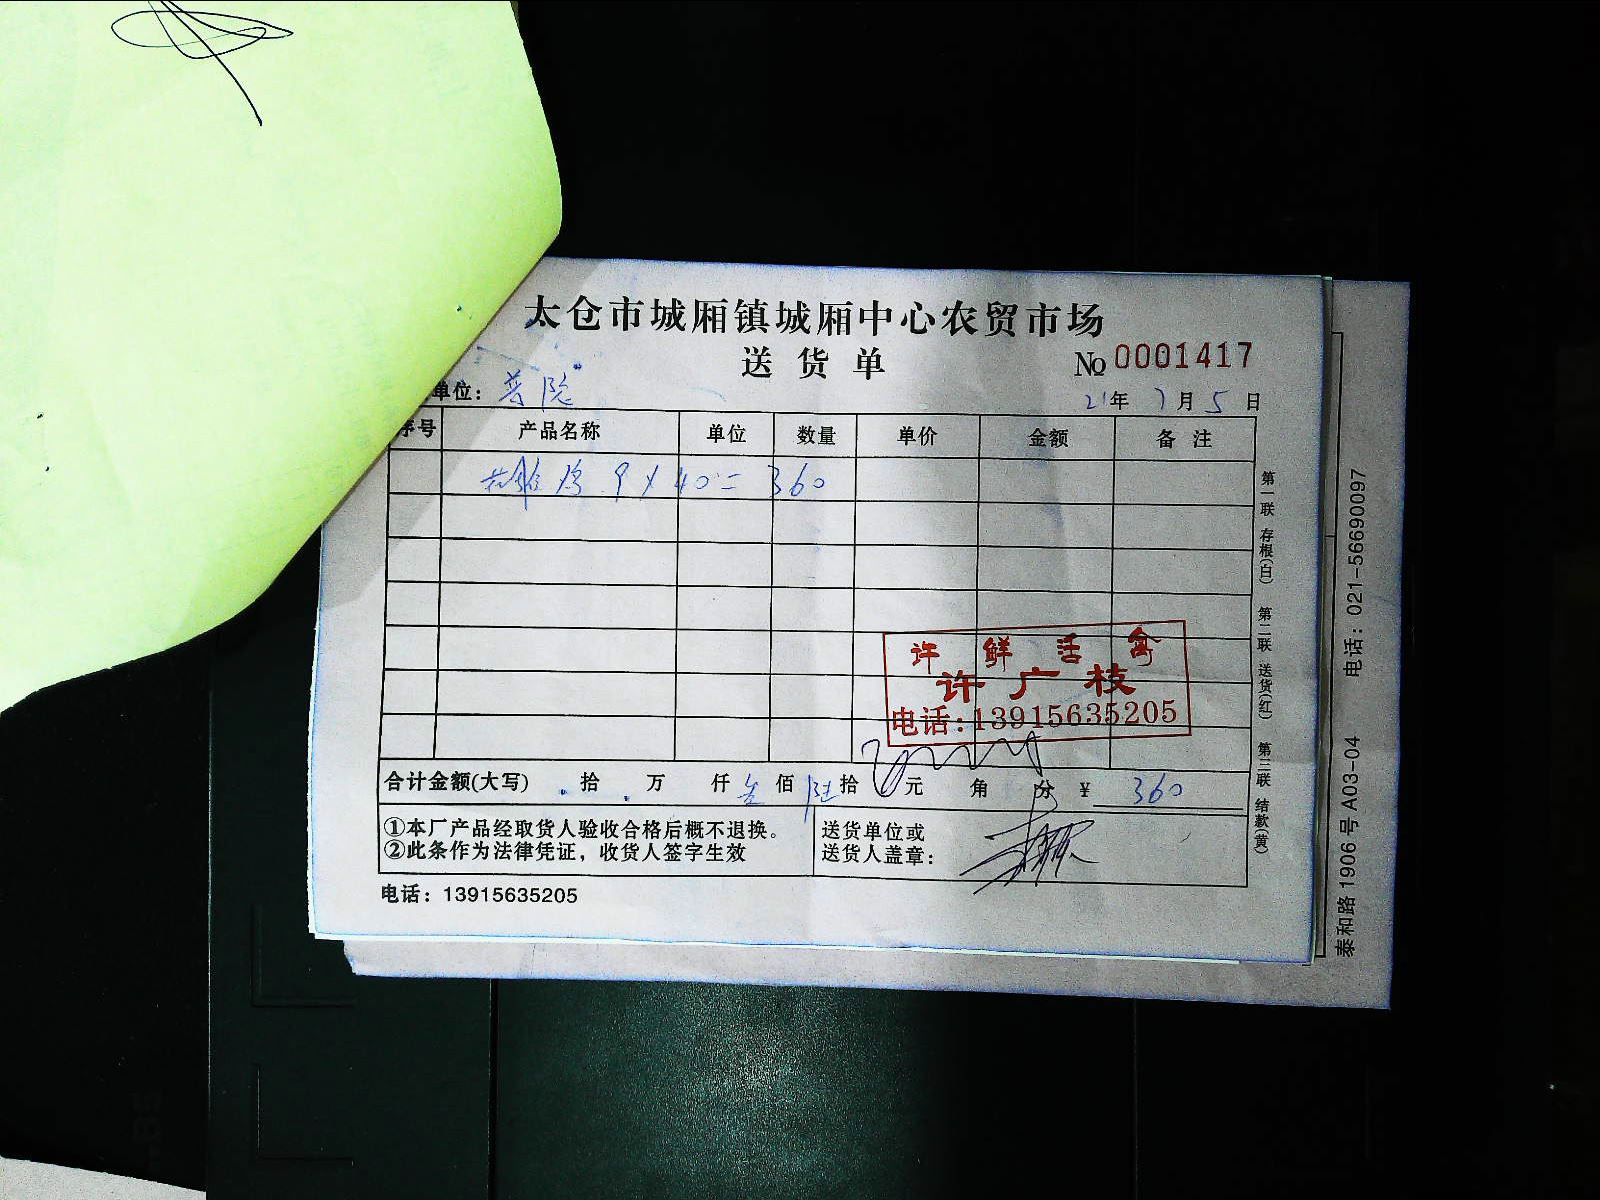 太仓市城厢镇城厢中心农贸市场
送货单
№ 0001417
单位：
21年 7月 5日
序号 产品名称 单位 数量 单价 金额 备注
9 × 40 = 360
许鲜活禽
许广枝
电话:13915635205
合计金额(大写) 拾 万 仟 叁佰 陆拾 元 角 分 ¥ 360
①本厂产品经取货人验收合格后概不退换。
②此条作为法律凭证，收货人签字生效
送货单位或
送货人盖章：
电话：13915635205
第一联 存根(白) 第二联 送货(红) 第三联 结款(黄)
泰和路1906号A03-04 电话：021-56690097